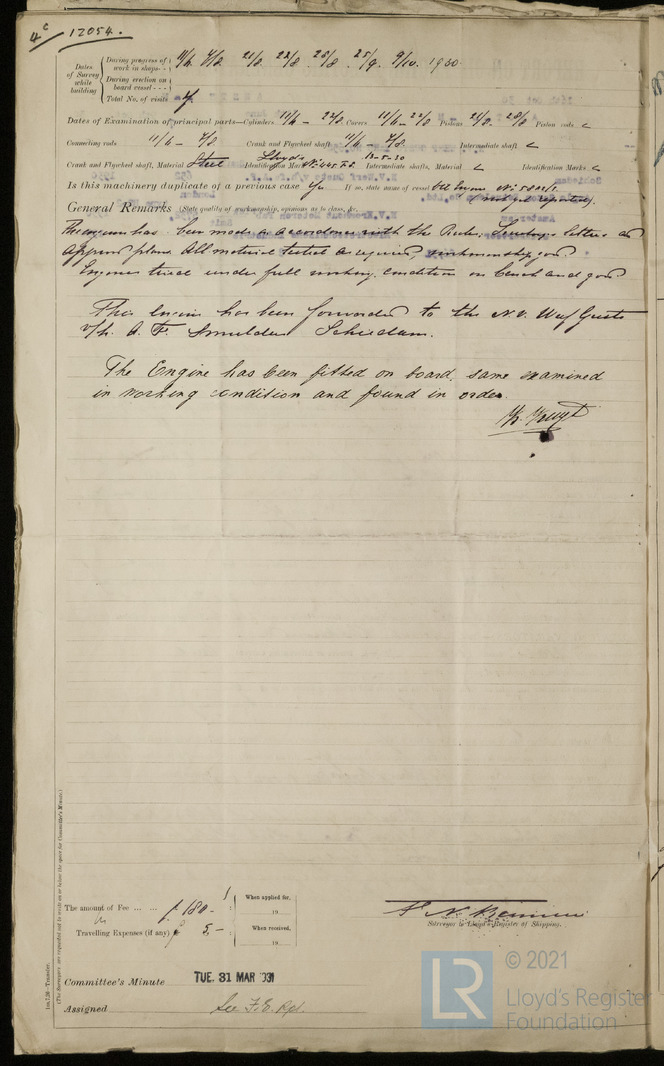 4c/ 12054.
Dates of Survey while building
During progress of work in shops - - 11/6 7/8 21/8 22/8 28/8 25/9 9/10. 1930
During erection on board vessel - - -
Total No. of visits 7
Dates of Examination of principal parts—Cylinders 11/6 – 22/8 Covers 11/6 – 22/8 Pistons 21/8 28/8 Piston rods
Connecting rods 11/6 – 7/8 Crank and Flywheel shaft 11/6 7/8. Intermediate shaft
Crank and Flywheel shaft, Material Steel Identification Mark Lloyds 13-5-30 Intermediate shafts, Material Identification Marks
Is this machinery duplicate of a previous case Yes If so, state name of vessel
General Remarks (State quality of workmanship, opinions as to class, &c.
The engine has been made in accordance with the Rules, Secretary's letters and
approved plans. All material tested as required, workmanship good.
Engines tried under full working condition on bench and good.
This engine has been forwarded to the N.V. Werf Gusto
v/h. A. F. Smulders Schiedam.
The Engine has been fitted on board, same examined
in working condition and found in order.
The amount of Fee ... ... ƒ 180 - : When applied for,
19
Travelling Expenses (if any) ƒ 5.- : When received,
19
Surveyor to Lloyd's Register of Shipping.
Committee's Minute TUE. 31 MAR 1931
Assigned See F.E. Rpt.
(The Surveyors are requested not to write on or below the space for Committee's Minute.)
© 2021
LR Lloyd's Register
Foundation